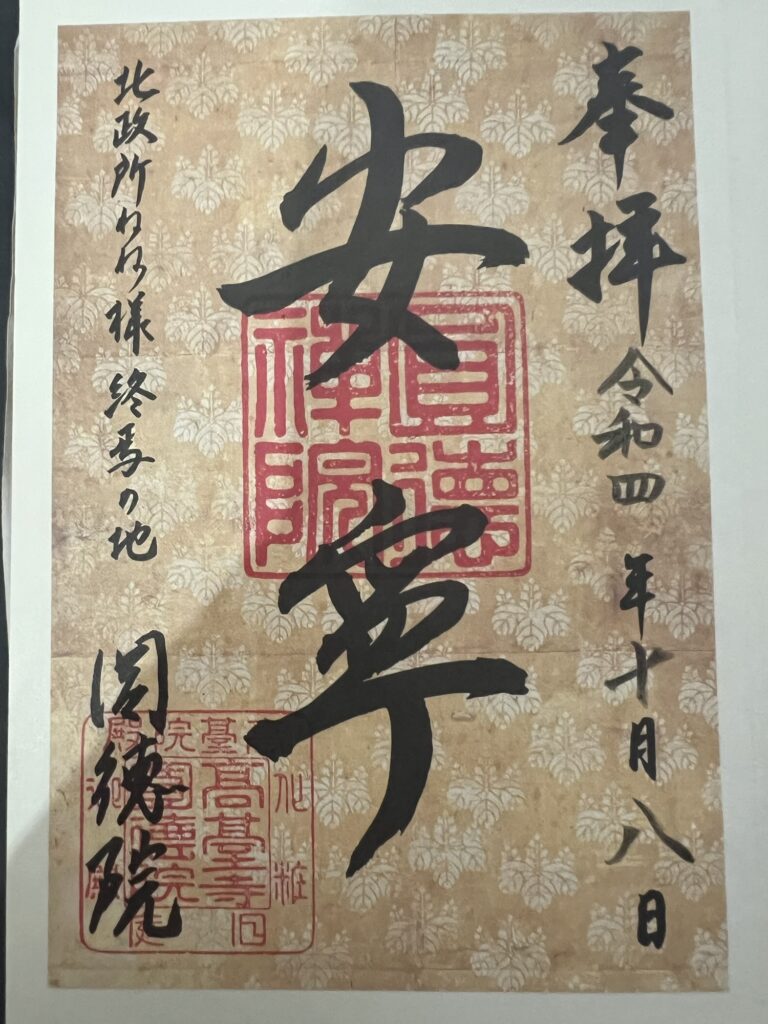 奉拝 令和四年十月八日
安寧
圓徳禅院
北政所ねね様終焉の地
圓徳院
高臺寺
圓徳院